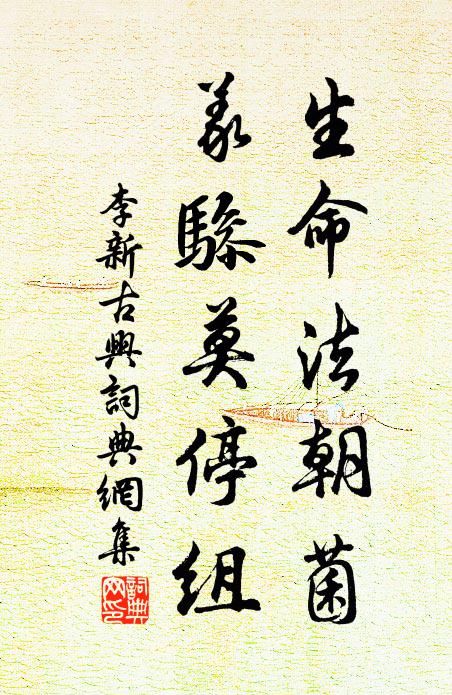 生命法朝菌
羲驂莫停组
李新古典詞典網集
詞典网印